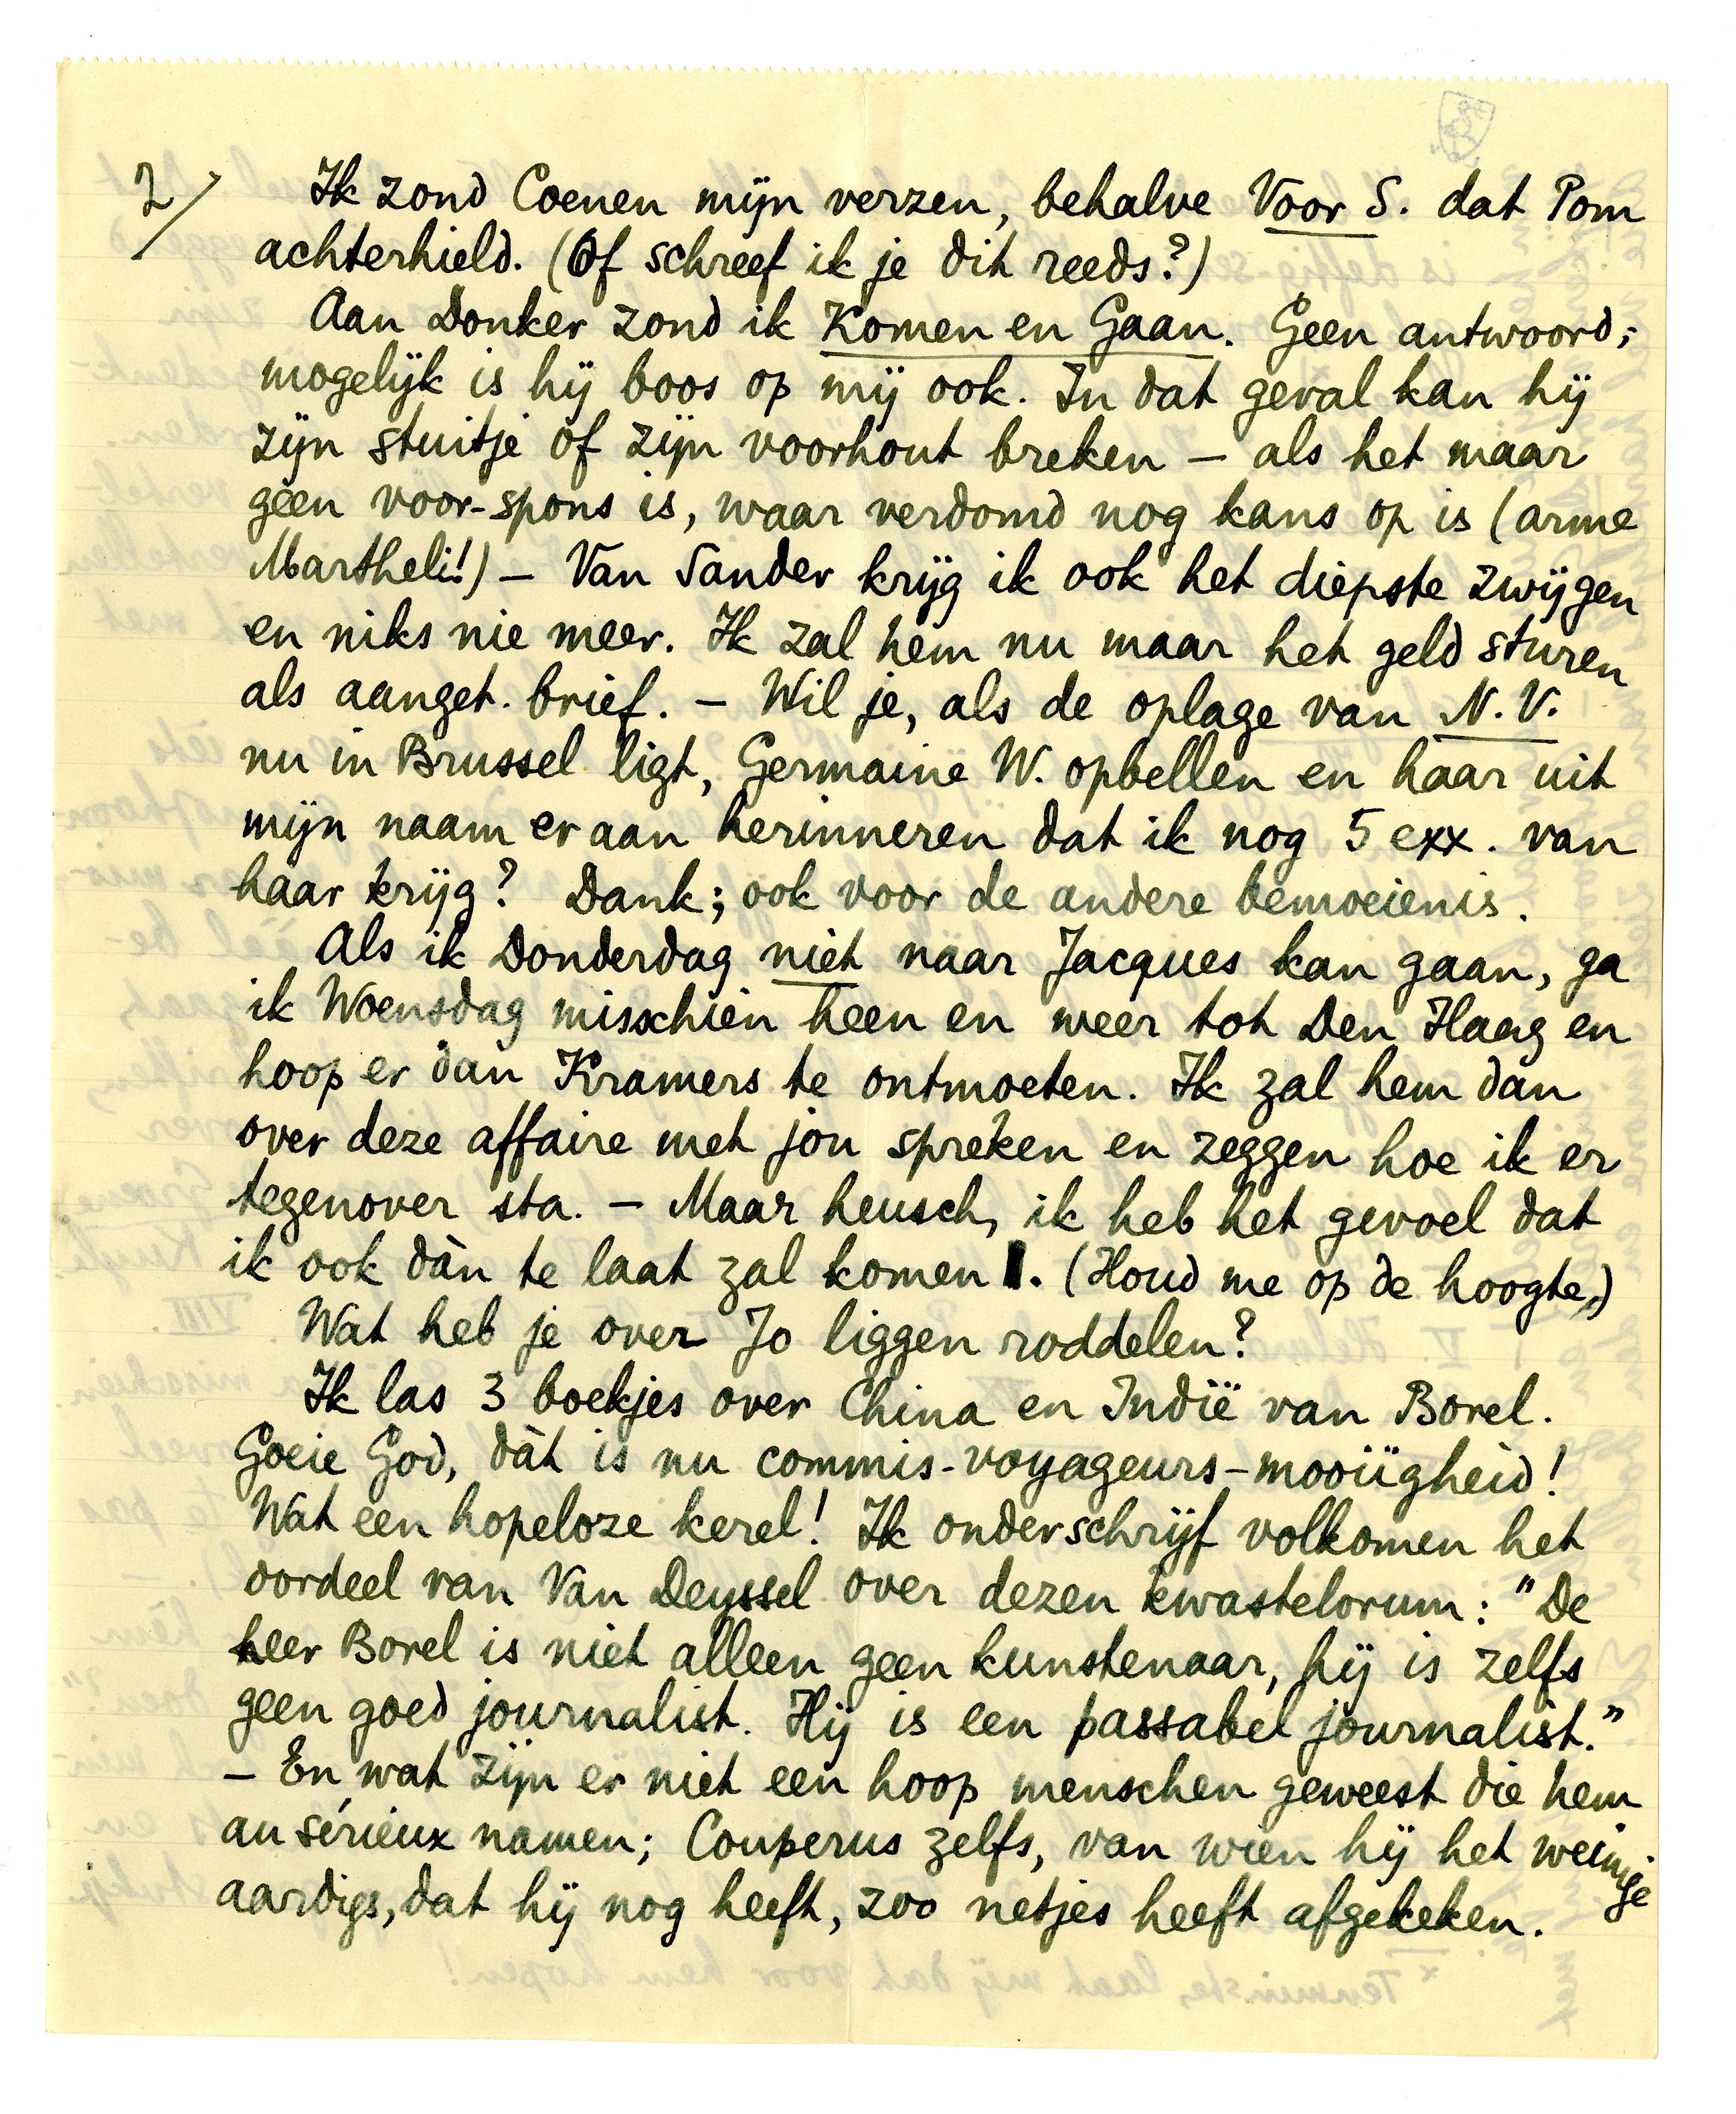 2/
Ik zond Coenen mijn verzen, behalve Voor S. dat Pom
achterhield. (Of schreef ik je dit reeds?)
Aan Donker zond ik Komen en Gaan. Geen antwoord;
mogelijk is hij boos op mij ook. In dat geval kan hij
zijn stuitje of zijn voorhout breken – als het maar
geen voor-spons is, waar verdomd nog kans op is (arme
Martheli!) – Van Sander krijg ik ook het diepste zwijgen
en niks nie meer. Ik zal hem nu maar het geld sturen
als aanget. brief. – Wil je, als de oplage van N.V.
nu in Brussel ligt, Germaine W. opbellen en haar uit
mijn naam er aan herinneren dat ik nog 5 exx. van
haar krijg? Dank; ook voor de andere bemoeienis.
Als ik Donderdag niet naar Jacques kan gaan, ga
ik Woensdag misschien heen en weer tot Den Haag en
hoop er dan Kramers te ontmoeten. Ik zal hem dan
over deze affaire met jou spreken en zeggen hoe ik er
tegenover sta. – Maar heusch, ik heb het gevoel dat
ik ook dàn te laat zal komen. (Houd me op de hoogte.)
Wat heb je over Jo liggen roddelen?
Ik las 3 boekjes over China en Indië van Borel.
Goeie God, dàt is nu commis-voyageurs-mooiïgheid!
Wat een hopeloze kerel! Ik onderschrijf volkomen het
oordeel van Van Deyssel over dezen kwastelorum: "De
heer Borel is niet alleen geen kunstenaar, hij is zelfs
geen goed journalist. Hij is een passabel journalist."
– En wat zijn er niet een hoop menschen geweest die hem
au sérieux namen; Couperus zelfs, van wien hij het weinige
aardigs, dat hij nog heeft, zoo netjes heeft afgekeken.